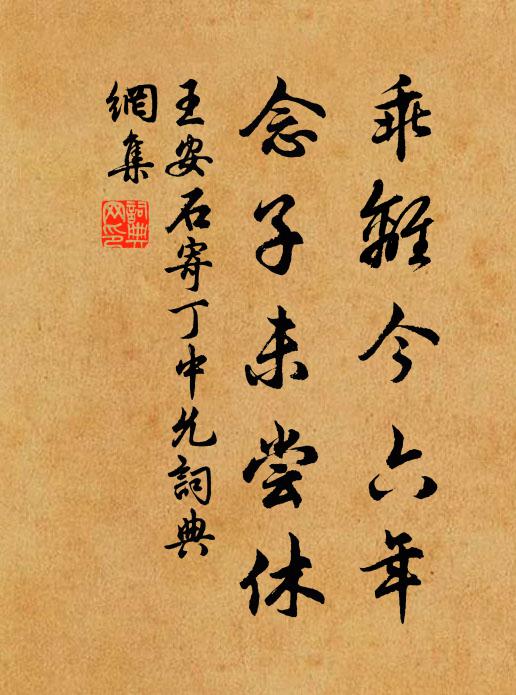 乖離今六年
念子未尝休
王安石寄丁中允詞典
網集
詞典
网印